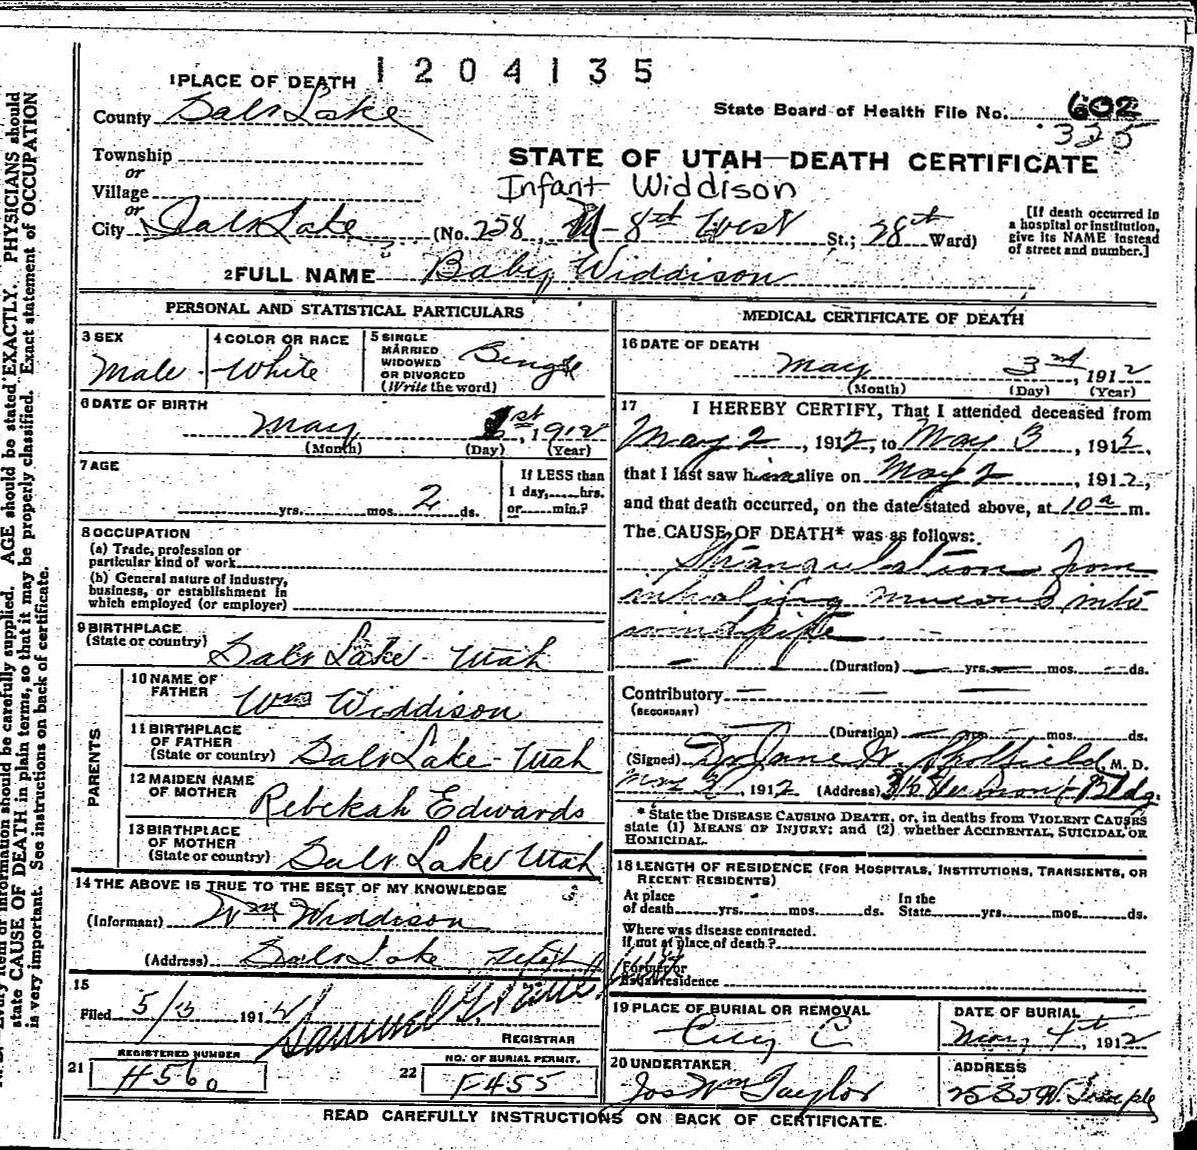 1204135
1 PLACE OF DEATH
County Salt Lake
State Board of Health File No. 602
325
Township
or
Village
or
STATE OF UTAH—DEATH CERTIFICATE
Infant Widdison
City Salt Lake (No. 258, N - 8th West St.; 28th Ward)
[If death occurred in
a hospital or institution,
give its NAME instead
of street and number.]
2 FULL NAME Baby Widdison
PERSONAL AND STATISTICAL PARTICULARS
3 SEX
Male
4 COLOR OR RACE
White
5 SINGLE
MARRIED
WIDOWED
OR DIVORCED
(Write the word)
Single
6 DATE OF BIRTH
May 1st, 1912
(Month) (Day) (Year)
7 AGE
yrs. mos. 2 ds.
If LESS than
1 day, hrs.
or min.?
8 OCCUPATION
(a) Trade, profession or
particular kind of work
(b) General nature of industry,
business, or establishment in
which employed (or employer)
9 BIRTHPLACE
(State or country) Salt Lake - Utah
PARENTS
10 NAME OF
FATHER Wm Widdison
11 BIRTHPLACE
OF FATHER
(State or country) Salt Lake - Utah
12 MAIDEN NAME
OF MOTHER Rebekah Edwards
13 BIRTHPLACE
OF MOTHER
(State or country) Salt Lake Utah
14 THE ABOVE IS TRUE TO THE BEST OF MY KNOWLEDGE
(Informant) Wm Widdison
(Address) Salt Lake Utah
15
Filed 5/3 1912 Samuel G.
REGISTRAR
REGISTERED NUMBER
21 H560
NO. OF BURIAL PERMIT.
22 F455
MEDICAL CERTIFICATE OF DEATH
16 DATE OF DEATH
May 3rd, 1912
(Month) (Day) (Year)
17 I HEREBY CERTIFY, That I attended deceased from
May 2, 1912, to May 3, 1912,
that I last saw him alive on May 2, 1912,
and that death occurred, on the date stated above, at 10 a m.
The CAUSE OF DEATH* was as follows:
Strangulation from
inhaling mucous into
windpipe
(Duration) yrs. mos. ds.
Contributory
(SECONDARY)
(Duration) yrs. mos. ds.
(Signed) Dr Jane W. Skolfield, M. D.
May 3, 1912 (Address) 316 Vermont Bldg.
* State the DISEASE CAUSING DEATH, or, in deaths from VIOLENT CAUSES
state (1) MEANS OF INJURY; and (2) whether ACCIDENTAL, SUICIDAL OR
HOMICIDAL.
18 LENGTH OF RESIDENCE (FOR HOSPITALS, INSTITUTIONS, TRANSIENTS, OR
RECENT RESIDENTS)
At place
of death yrs. mos. ds.
In the
State yrs. mos. ds.
Where was disease contracted.
if not at place of death?
Former or
usual residence
19 PLACE OF BURIAL OR REMOVAL
City C
DATE OF BURIAL
May 4th, 1912
20 UNDERTAKER
Jos Wm Taylor
ADDRESS
25 So W. Temple
READ CAREFULLY INSTRUCTIONS ON BACK OF CERTIFICATE.
Every item of information should be carefully supplied. AGE should be stated EXACTLY. PHYSICIANS should
state CAUSE OF DEATH in plain terms, so that it may be properly classified. Exact statement of OCCUPATION
is very important. See instructions on back of certificate.